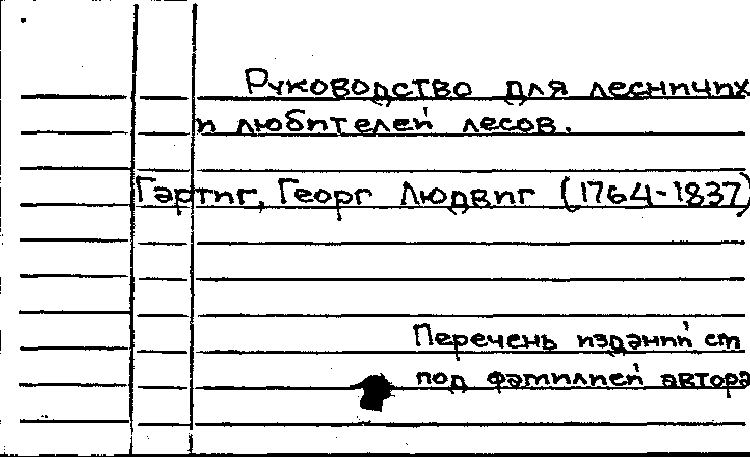 Руководство для лесничих
и любителей лесов.
Гартиг, Георг Людвиг (1764-1837)
Перечень изданий см
под фамилией автора